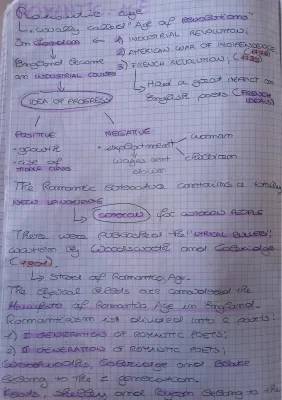 ROMANTIC Age
↳ usually called "Age of REVOLUTIONS"
In
England ← 1) INDUSTRIAL REVOLUTION;
England became 2) AMERICAN WAR OF INDEPENDENCE;
an INDUSTRIAL COUNTRY 3) FRENCH REVOLUTION;
↳ Had a great impact on
English poets (FRENCH IDEALS)
IDEA OF PROGRESS
POSITIVE NEGATIVE
• growth • exploitment woman
• rise of children
MIDDLE CLASS wages and
The Romantic literature contains a totally
NEW LANGUAGE
↳ COMMON for COMMON PEOPLE
There was published the "LYRICAL BALLADS",
written by Wordsworth and Coleridge
↳ Start of Romantic Age.
The Lyrical Ballads are considered the
Manifesto of Romantic Age in England.
Romanticism is divided into 2 parts:
1) I GENERATION OF ROMANTIC POETS;
2) II GENERATION OF ROMANTIC POETS;
Wordsworth, Coleridge and Blake
belong to the I generation.
Keats, Shelley and Byron belong to the